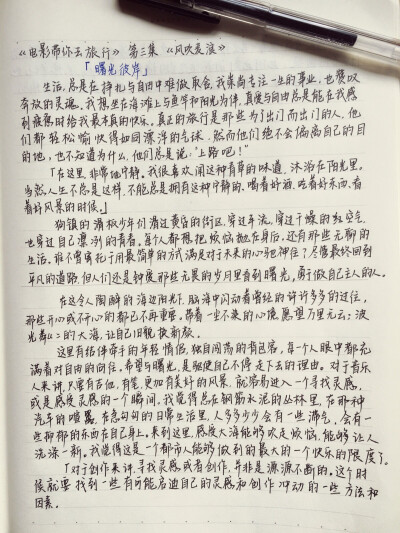 《电影带你去旅行》第三集《风吹麦浪》
「曙光彼岸」
生活，总是在挣扎与自由中难做取舍，我崇尚专注一生的事业，也赞叹
奔放的灵魂。我想坐在海滩上与鱼竿和阳光为伴，真爱与自由总是能在我感
到疲惫时给我最本真的快乐。真正的旅行是那些为了出门而出门的人，他
们都轻松愉快得如同漂浮的气球，然而他们绝不会偏离自己的目
的地，也不知道为什么，他们总是说："上路吧！"
「在这里，非常他宁静，我很喜欢闻这种青草的味道，沐浴在阳光里。
当然人生不总是这样，不能总是拥有这种宁静的、喝着好酒、吃着好东西、看
着好风景的时候。」
狗镇的滑板少年们滑过黄昏的街区，穿过车流，穿过干燥的热空气，
也穿过自己凛冽的青春。每个人都想把烦恼抛在身后，还有那些无聊的
生活。谁不曾寄托于用最简单的方式满足对于未来的心驰神往？尽管最终回到
平凡的道路，但人们还是钟爱那些无畏的岁月里看到曙光，勇于做自己主人的人。
在这令人陶醉的海边阳光下，脑海中闪动着曾经的许许多多的过往，
那些开心或不开心的都已不再重要。带着一尘不染的心境，愿望万里无云；波
光粼粼的大海，让自己旧貌换新颜。
这里有结伴牵手的年轻情侣，独自闯荡的背包客，每一个人眼中都充
满着对自由的向往，希望与曙光，是驱使自己不停走下去的理由。对于音乐
人来讲，只要有吉他，有笔，更加有美好的风景，就容易进入一个寻找灵感，
或是感度灵感的一个瞬间。我觉得总在钢筋水泥的丛林里，在那种
汽车的喧嚣，在急匆匆的日常生活里，人多多少少会有一些滞气，会有一
些抑郁的东西在自己身上。来到这里，感度大海能够吹走烦恼，能够让人
洗涤一新。我觉得这是一个都市人能够做到的最大的一个快乐的限度了。
「对于创作来讲，寻找灵感或者创作，并非是源源不断的。这个时
候就要找到一些有可能启迪自己的灵感和创作冲动的一些方法和
因素。